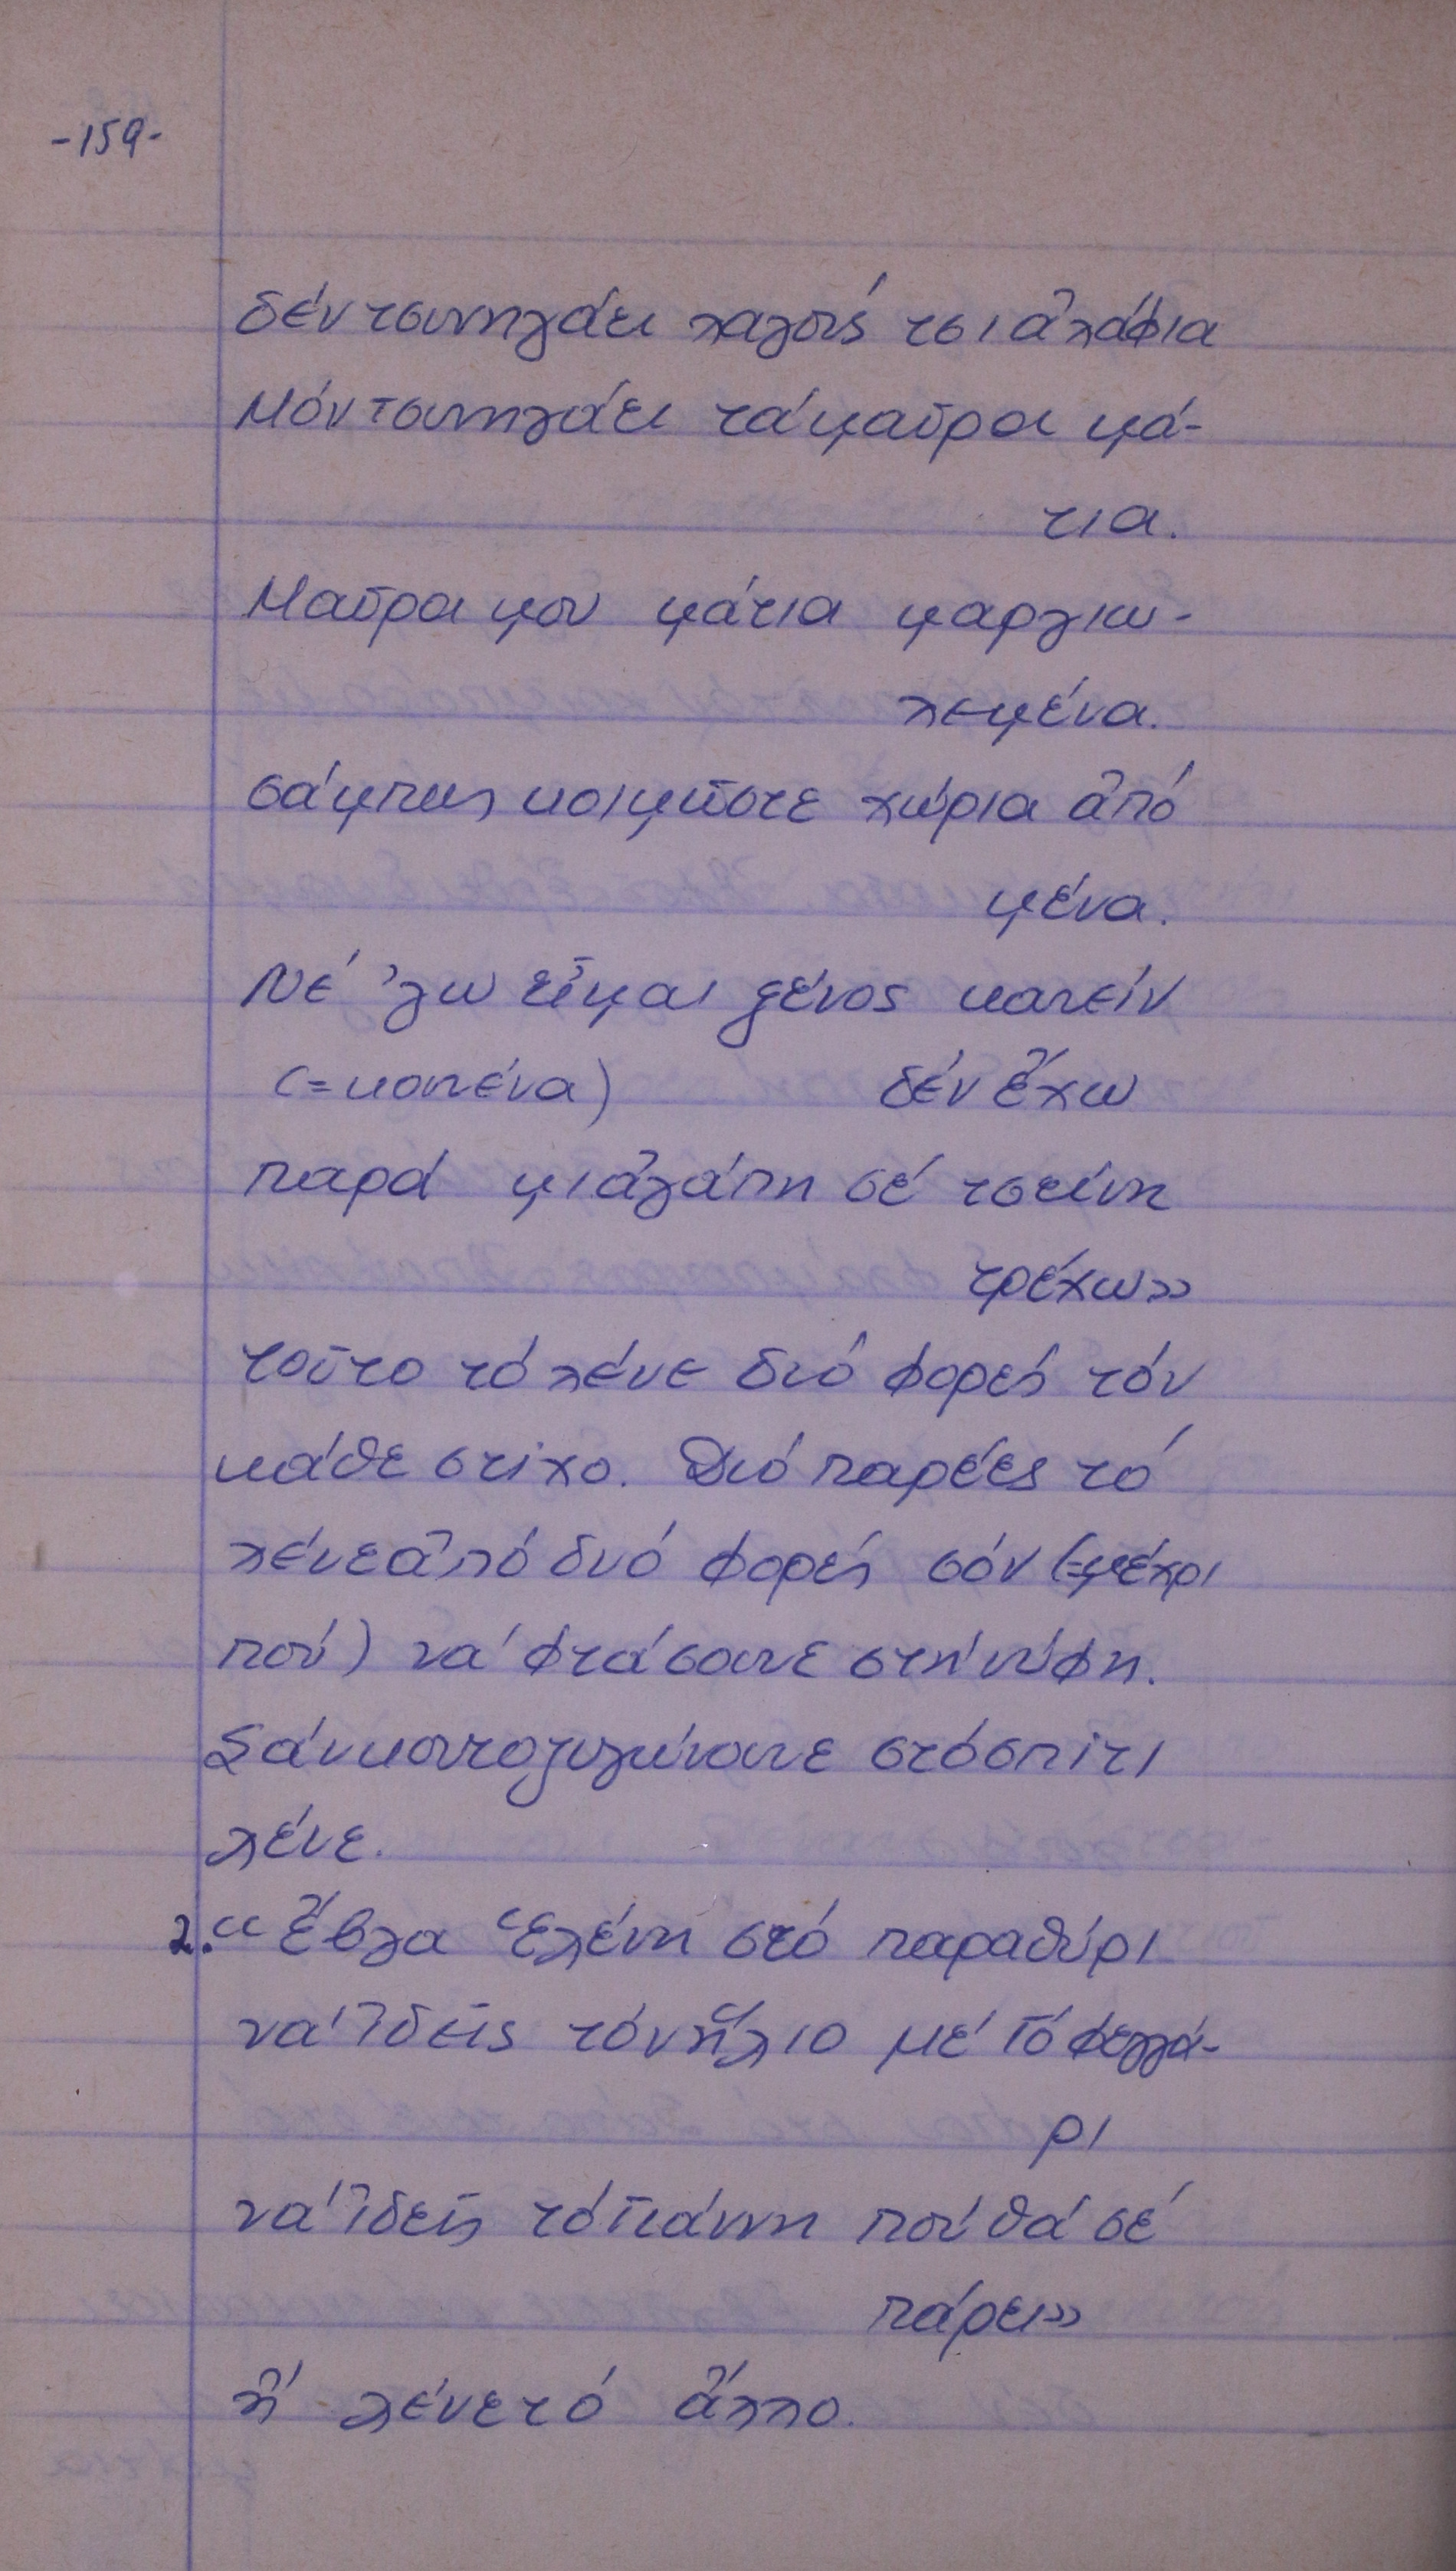 -159-
δέν τσυνηγάει λαγούς τσι ἀλάφια
Μόν τσυνηγάει τά μαῦρα μά-
τια.
Μαῦρα μου μάτια μαργιω-
λεμένα.
σάμπως κοιμᾶστε χώρια ἀπό
μένα.
Νέ 'γω εἶμαι ξένος κανείν
(=κανένα) δέν ἔχω
παρά μιά ἀγάπη σέ τσείνη
τρέχω»
τοῦτο τό λένε διό φορές τόν
κάθε στίχο. Διό παρέες τό
λένε ἀπό δυό φορές σόν (=μέχρι
πού) νά φτάσανε στή νύφη.
Σάν κοντοζυγώνανε στό σπίτι
λένε.
2. «Ἔβγα Ἑλένη στό παραθύρι
νά ἰδεῖς τόν ἥλιο μέ τό φεγγά-
ρι
νά ἰδεῖς τό Γιάννη πού θά σέ
πάρει»
ἤ λένε τό ἄλλο.